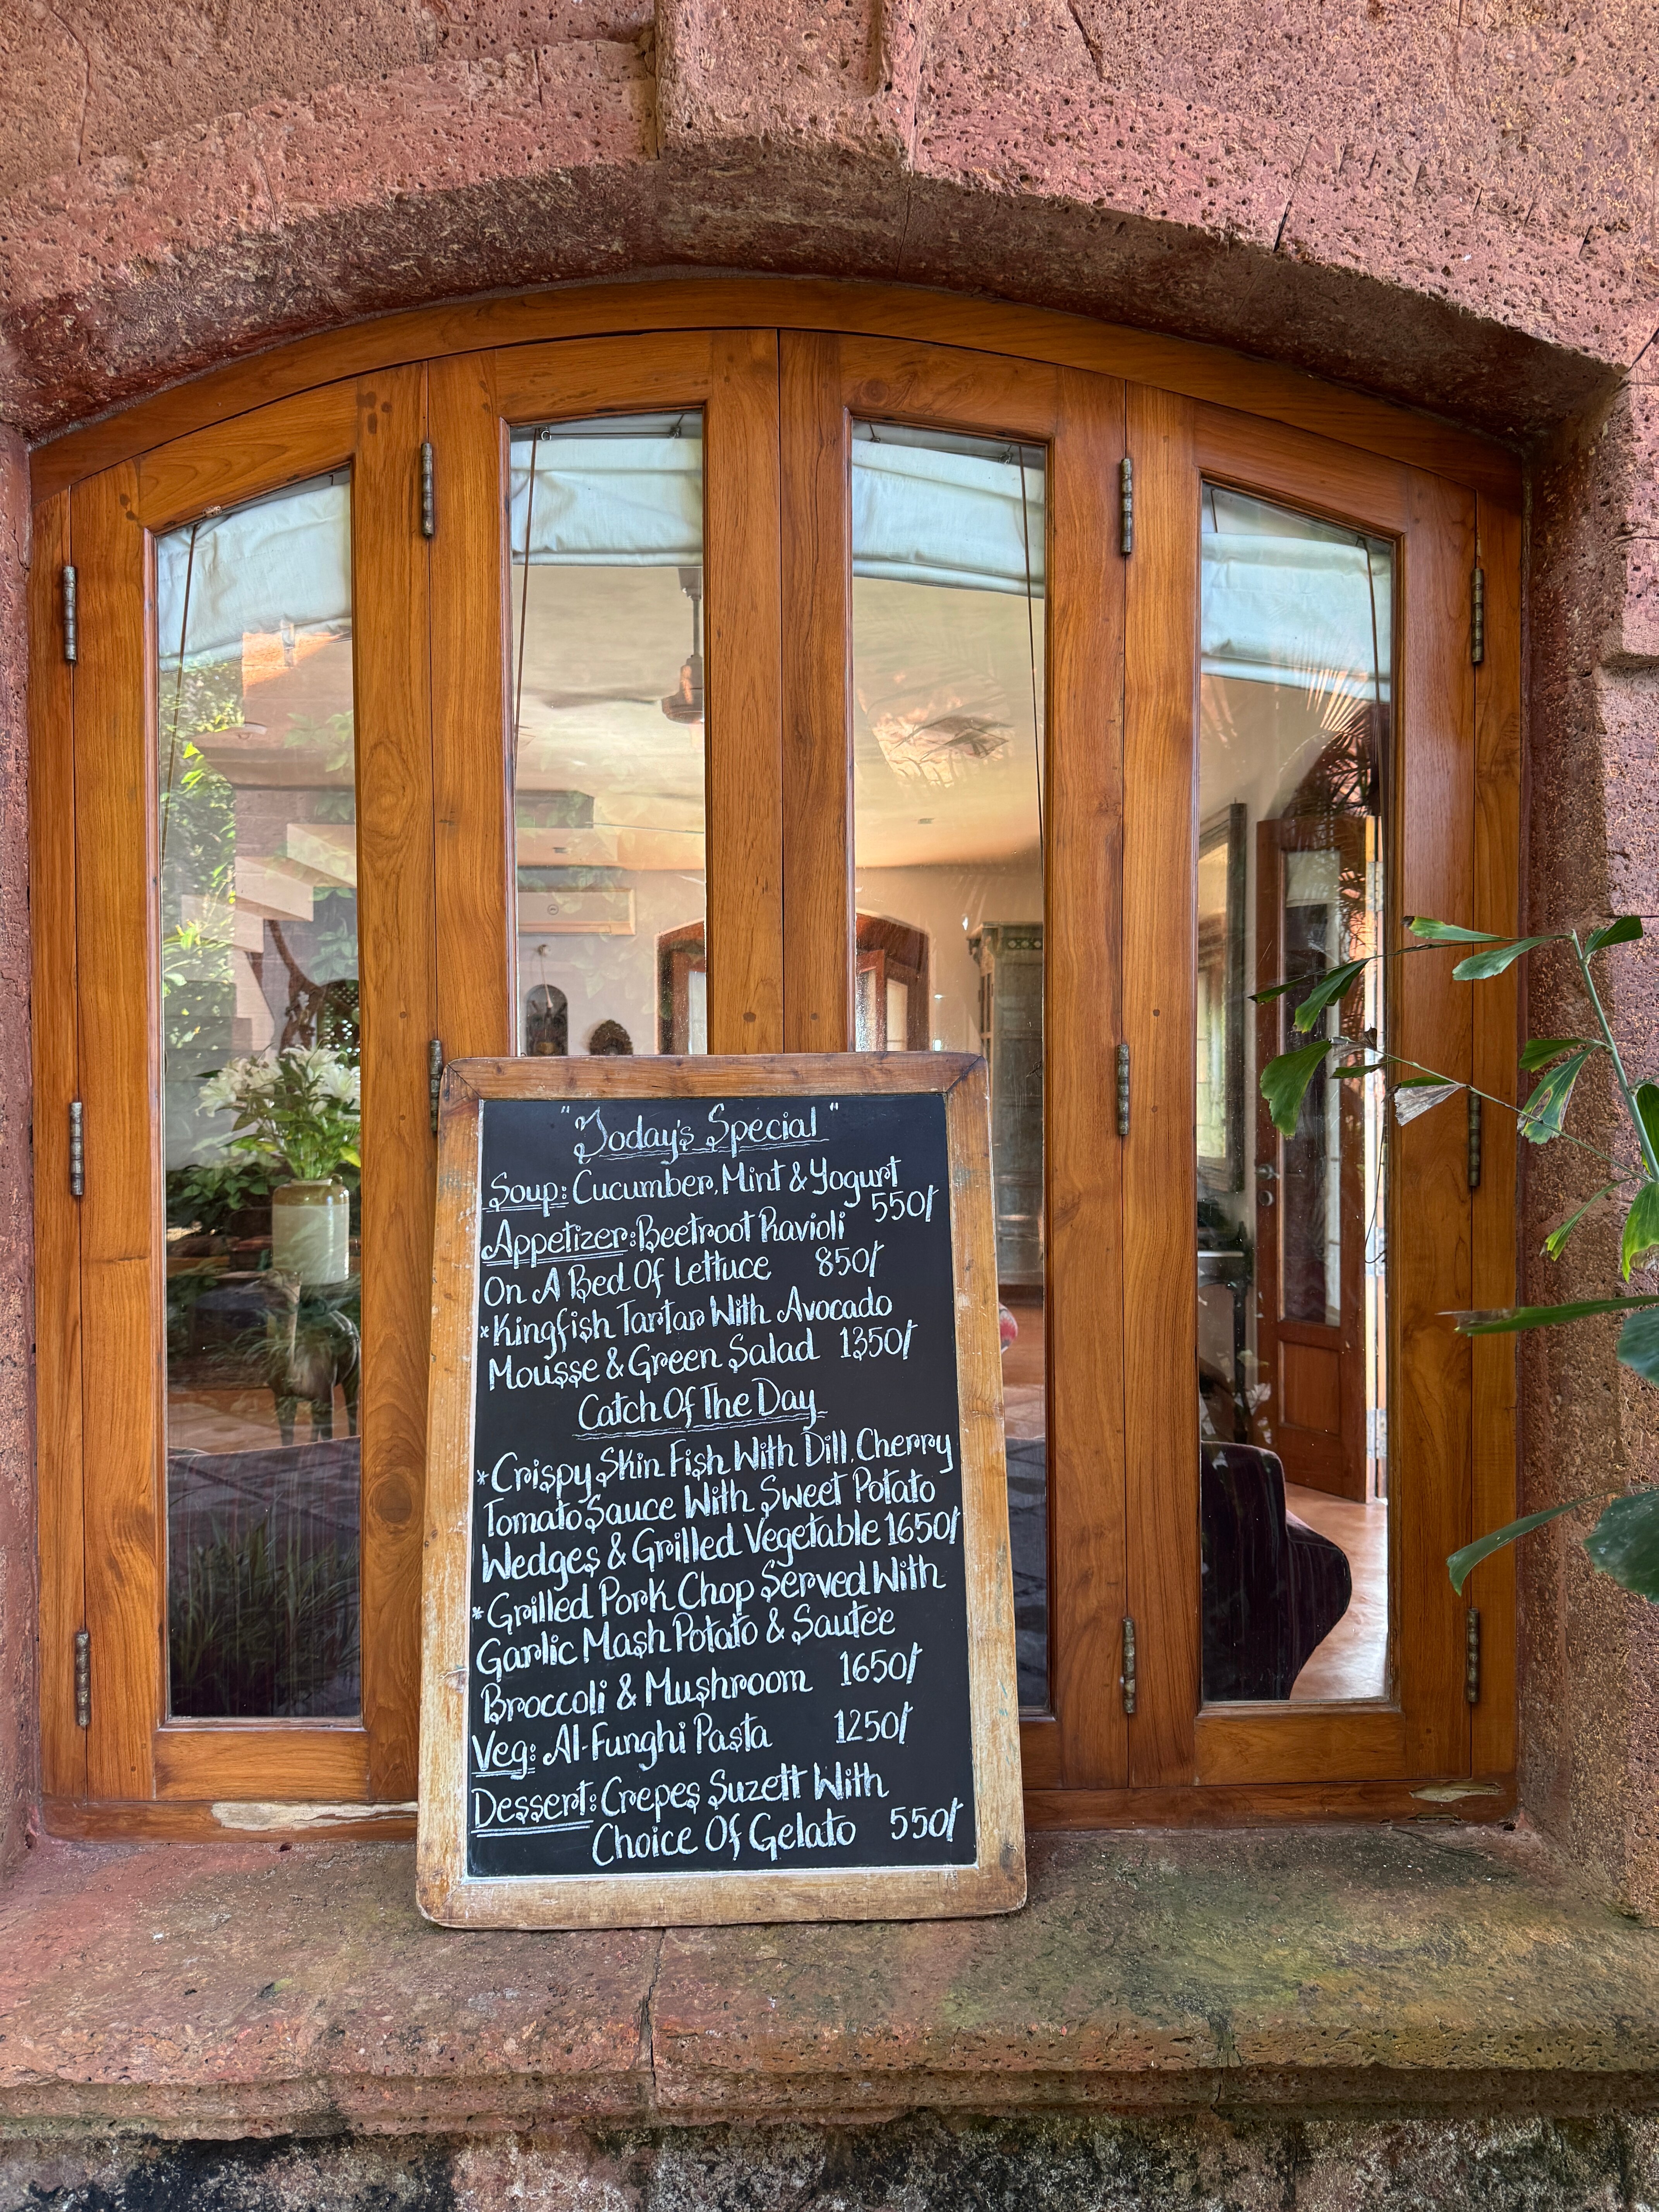 "Today's Special"
Soup: Cucumber, Mint & Yogurt
550/-
Appetizer: Beetroot Ravioli
On A Bed Of Lettuce 850/-
*Kingfish Tartar With Avocado
Mousse & Green Salad 1350/-
Catch Of The Day
*Crispy Skin Fish With Dill, Cherry
Tomato Sauce With Sweet Potato
Wedges & Grilled Vegetable 1650/-
*Grilled Pork Chop Served With
Garlic Mash Potato & Sautée
Broccoli & Mushroom 1650/-
Veg: Al-Funghi Pasta 1250/-
Dessert: Crepes Suzett With
Choice Of Gelato 550/-